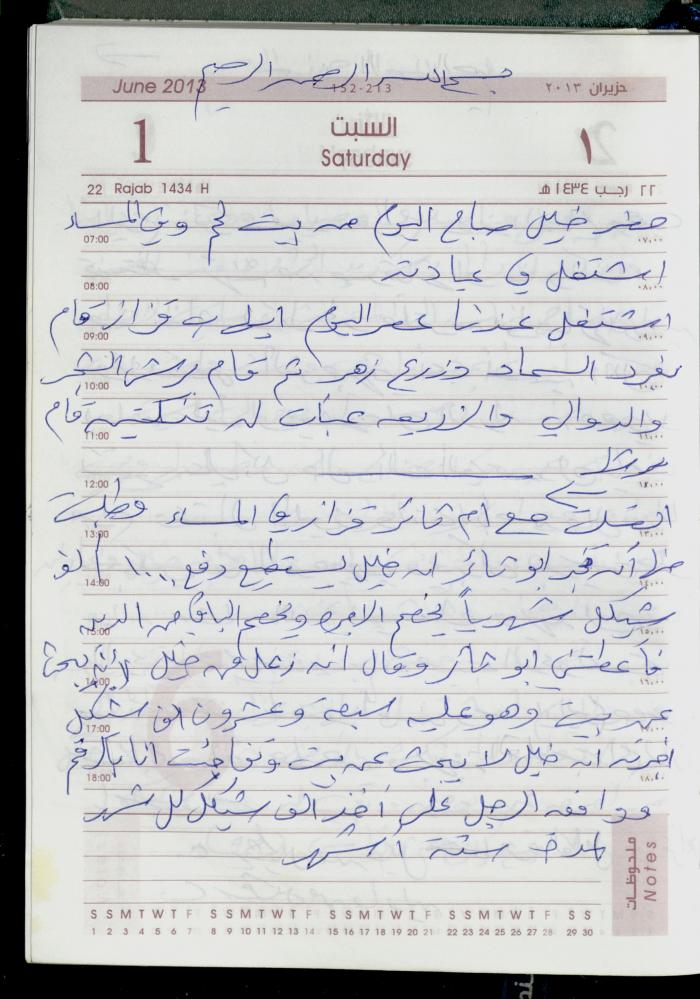 بسم الله الرحمن الرحيم
June 2013 152-213 حزيران ٢٠١٣
1 السبت ١
Saturday
22 Rajab 1434 H ٢٢ رجب ١٤٣٤ هـ
حضر خليل صباح اليوم من بيت لحم وفي المساء
07:00 ٠٧:٠٠
اشتغل في عيادته
08:00 ٠٨:٠٠
اشتغل عندنا عصر اليوم ايلي قزاز قام
09:00 ٠٩:٠٠
بفرد السماد وزرع زهر ثم قام برش الشجر
10:00 ١٠:٠٠
والدوالي والزريعه عبأت له تنكتين قام
11:00 ١١:٠٠
برشها
12:00 ١٢:٠٠
اتصلت مع ام ثائر قزاز في المساء وطلبت
13:00 ١٣:٠٠
منها أن تخبر ابو ثائر ان خليل يستطيع دفع ١٠٠٠ / الف
14:00 ١٤:٠٠
شيكل شهرياً يخصم الاجره ويخصم الباقي من الدين
15:00 ١٥:٠٠
فأعطتني ابو ثائر وقال انه زعل من خليل لأنه يبحث
16:00 ١٦:٠٠
عن بيت وهو عليه سبعة وعشرون الف شيكل
17:00
اخبرته ان خليل لا يبحث عن بيت وتفاجئت انا بالرقم
18:00 ١٨:٠٠
ووافق الرجل على أخذ الف شيكل كل شهر
لمدة ستة أشهر
ملاحظات Notes
S S M T W T F S S M T W T F S S M T W T F S S M T W T F S S
1 2 3 4 5 6 7 8 9 10 11 12 13 14 15 16 17 18 19 20 21 22 23 24 25 26 27 28 29 30